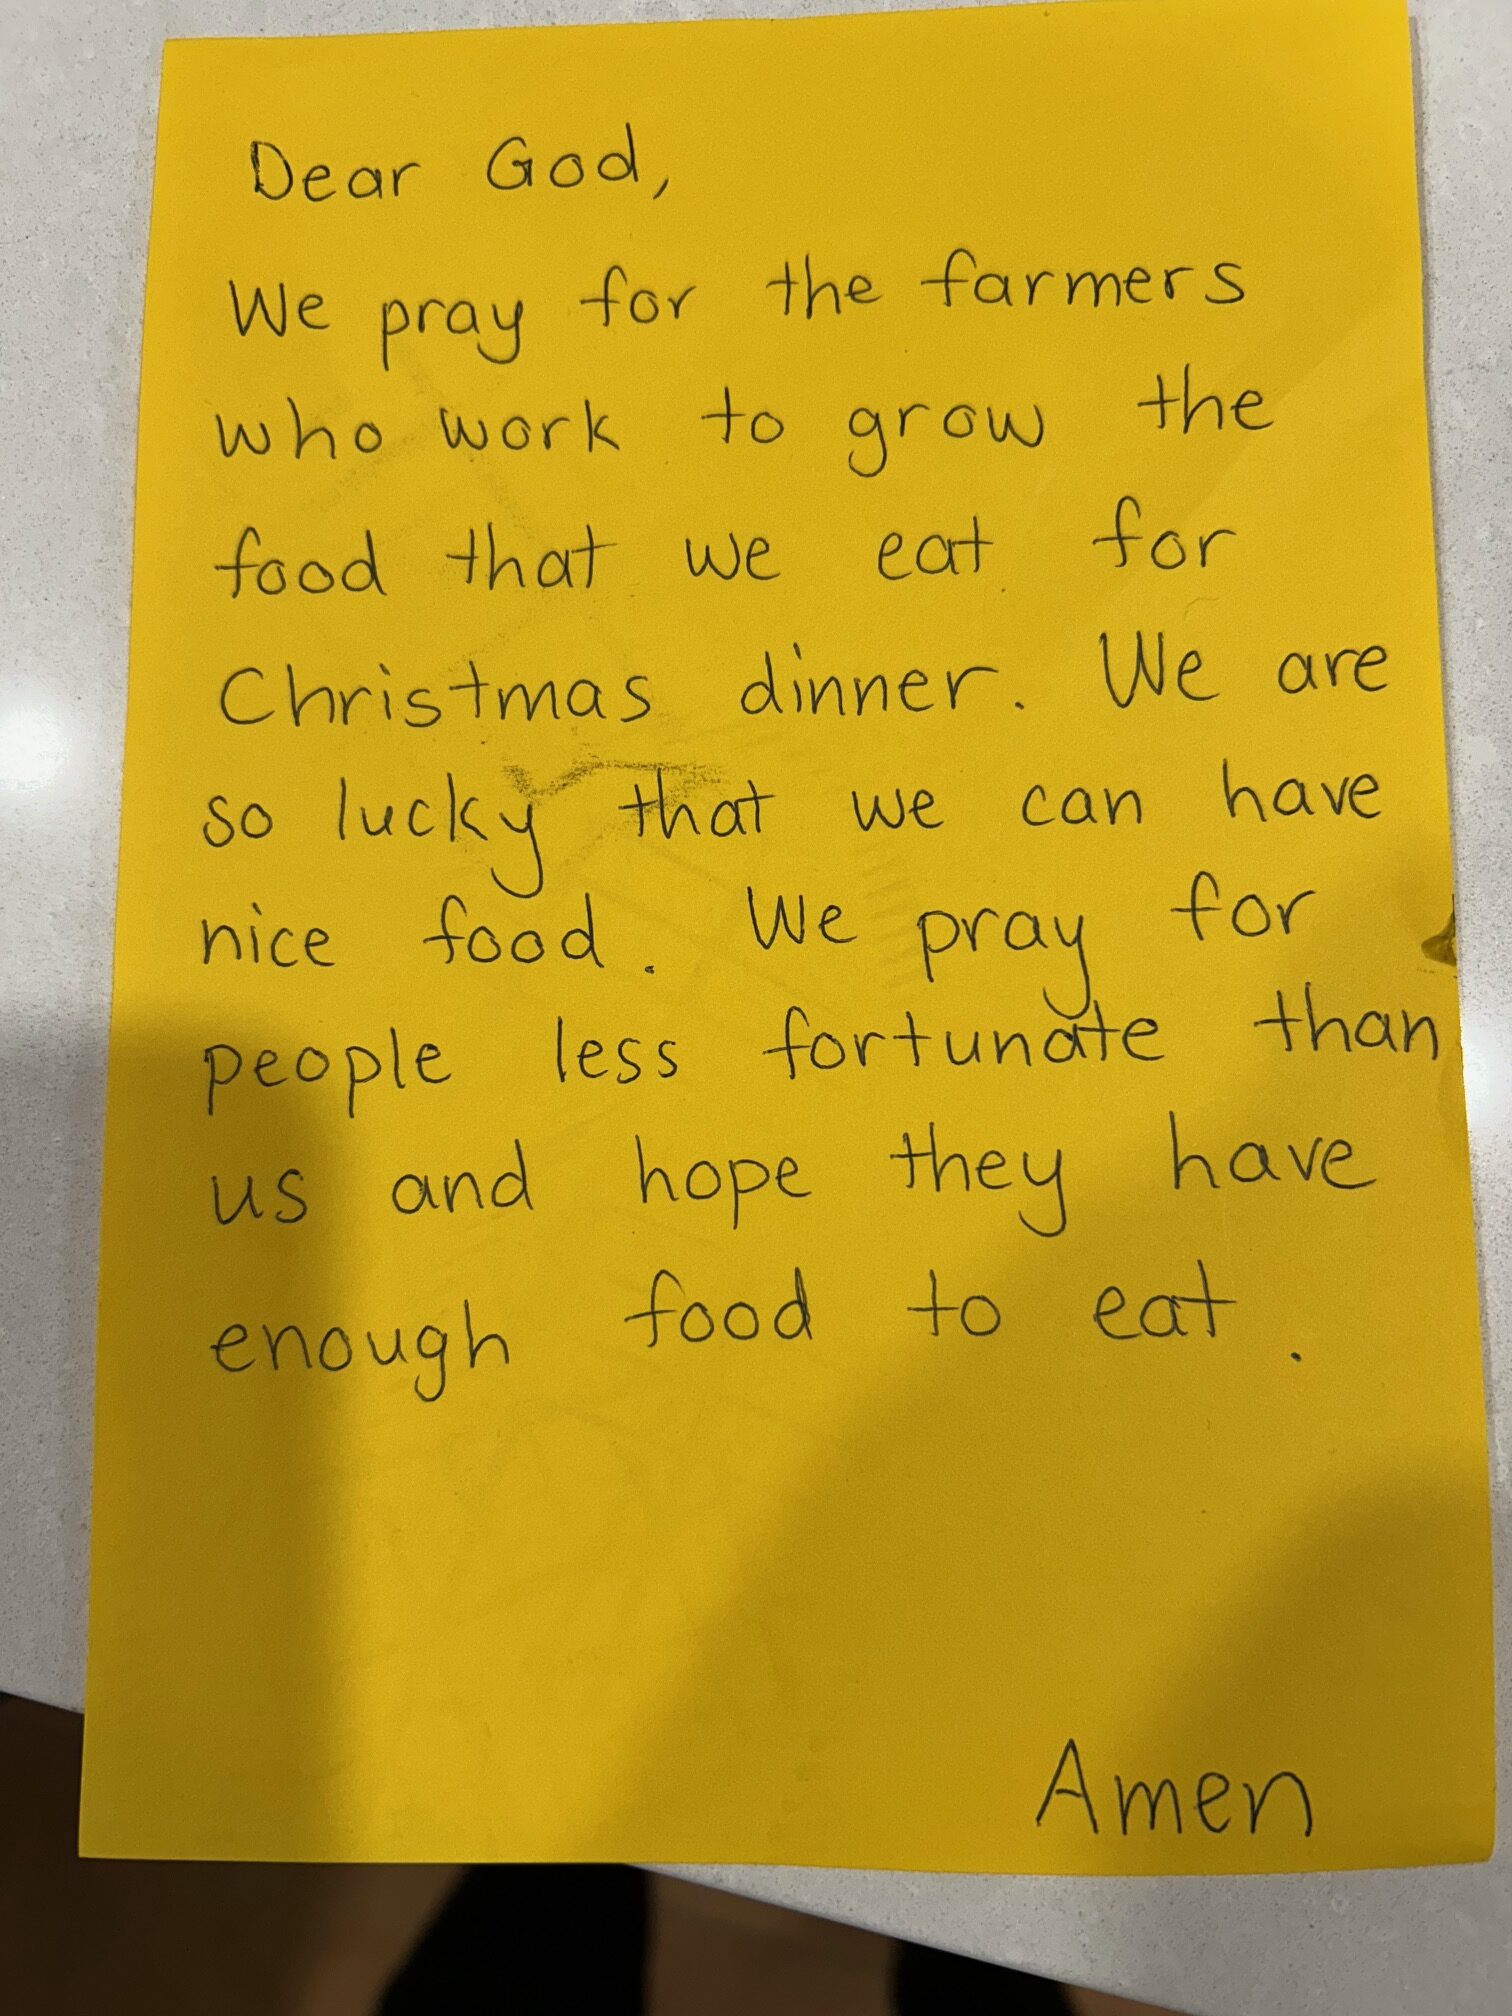 Dear God,
We pray for the farmers
who work to grow the
food that we eat for
Christmas dinner. We are
so lucky that we can have
nice food. We pray for
people less fortunate than
us and hope they have
enough food to eat.
Amen